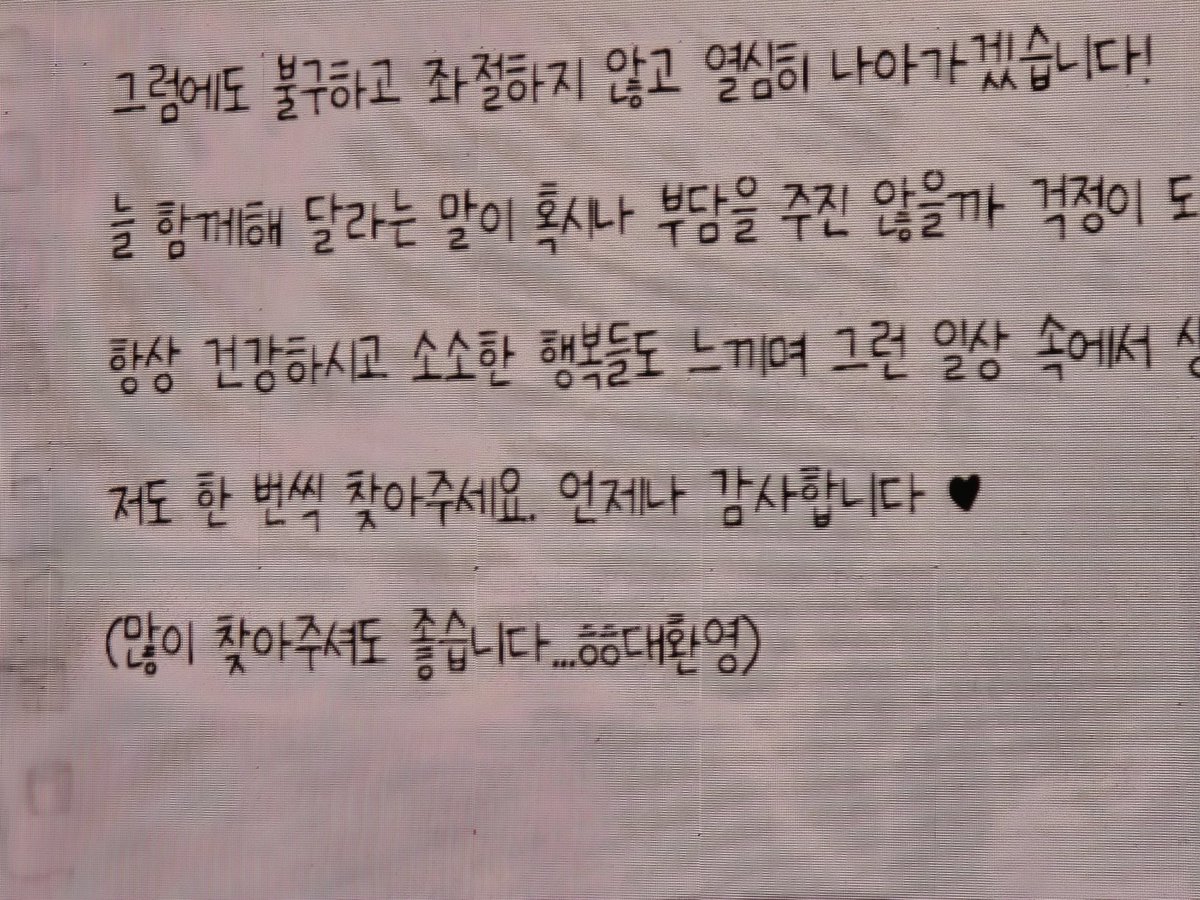 그럼에도 불구하고 좌절하지 않고 열심히 나아가겠습니다!
늘 함께해 달라는 말이 혹시나 부담을 주진 않을까 걱정이 도
항상 건강하시고 소소한 행복들도 느끼며 그런 일상 속에서
저도 한 번씩 찾아주세요. 언제나 감사합니다 ♥
(많이 찾아주셔도 좋습니다...흐흐대환영)